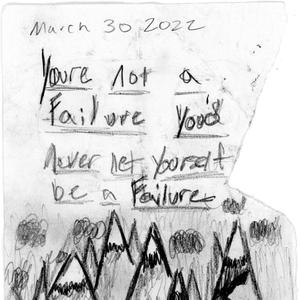 March 30 2022
Youre not a
Failure You'd
Never let Yourself
be a Failure